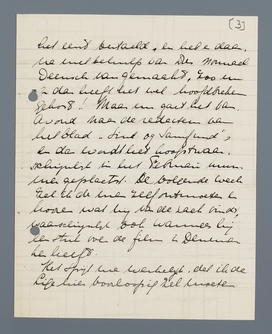 [3]
het eerst vertaald, en heb e daar
na met behulp van Dr. Normad
Deensch van gemaakt, zoo nu
en dan heeft het wel hoofdbreken
gekost! Maar nu gaat het van
avond naar de redacteur van
het blad "Sind og Samfund",
en dan wordt het hoogstwaar-
schijnlijk in het Februari num-
mer geplaatst. De volgende week
zal ik de man zelf ontmoeten en
hooren wat hij van de zaak vindt,
waarschijnlijk ook wanneer hij
over de film in Denemar-
ken heeft.
Het spijt me werkelijk, dat ik de
hier voorloopig zal moeten